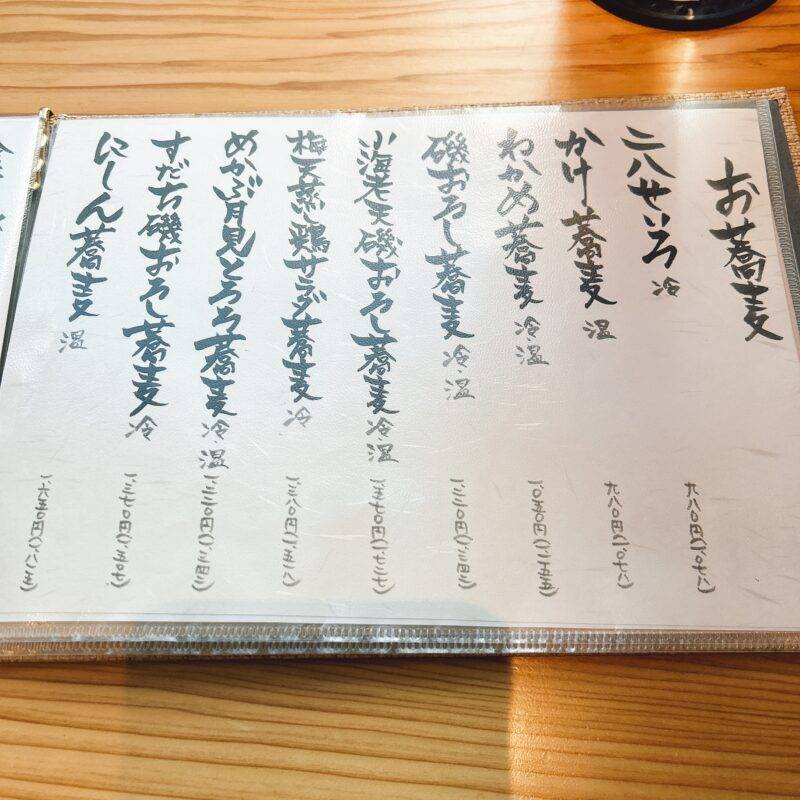 お蕎麦
二八せいろ 冷 九八〇円(一、〇七八)
かけ蕎麦 温 九八〇円(一、〇七八)
わかめ蕎麦 冷・温 一、〇五〇円(一、一五五)
磯おろし蕎麦 冷・温 一、二二〇円(一、三四二)
小海老天磯おろし蕎麦 冷・温 一、五七〇円(一、七二七)
梅天蒸し鶏サラダ蕎麦 冷 一、三八〇円(一、五一八)
めかぶ月見とろろ蕎麦 冷・温 一、二二〇円(一、三四二)
すだち磯おろし蕎麦 冷 一、三七〇円(一、五〇七)
にしん蕎麦 温 一、六五〇円(一、八一五)